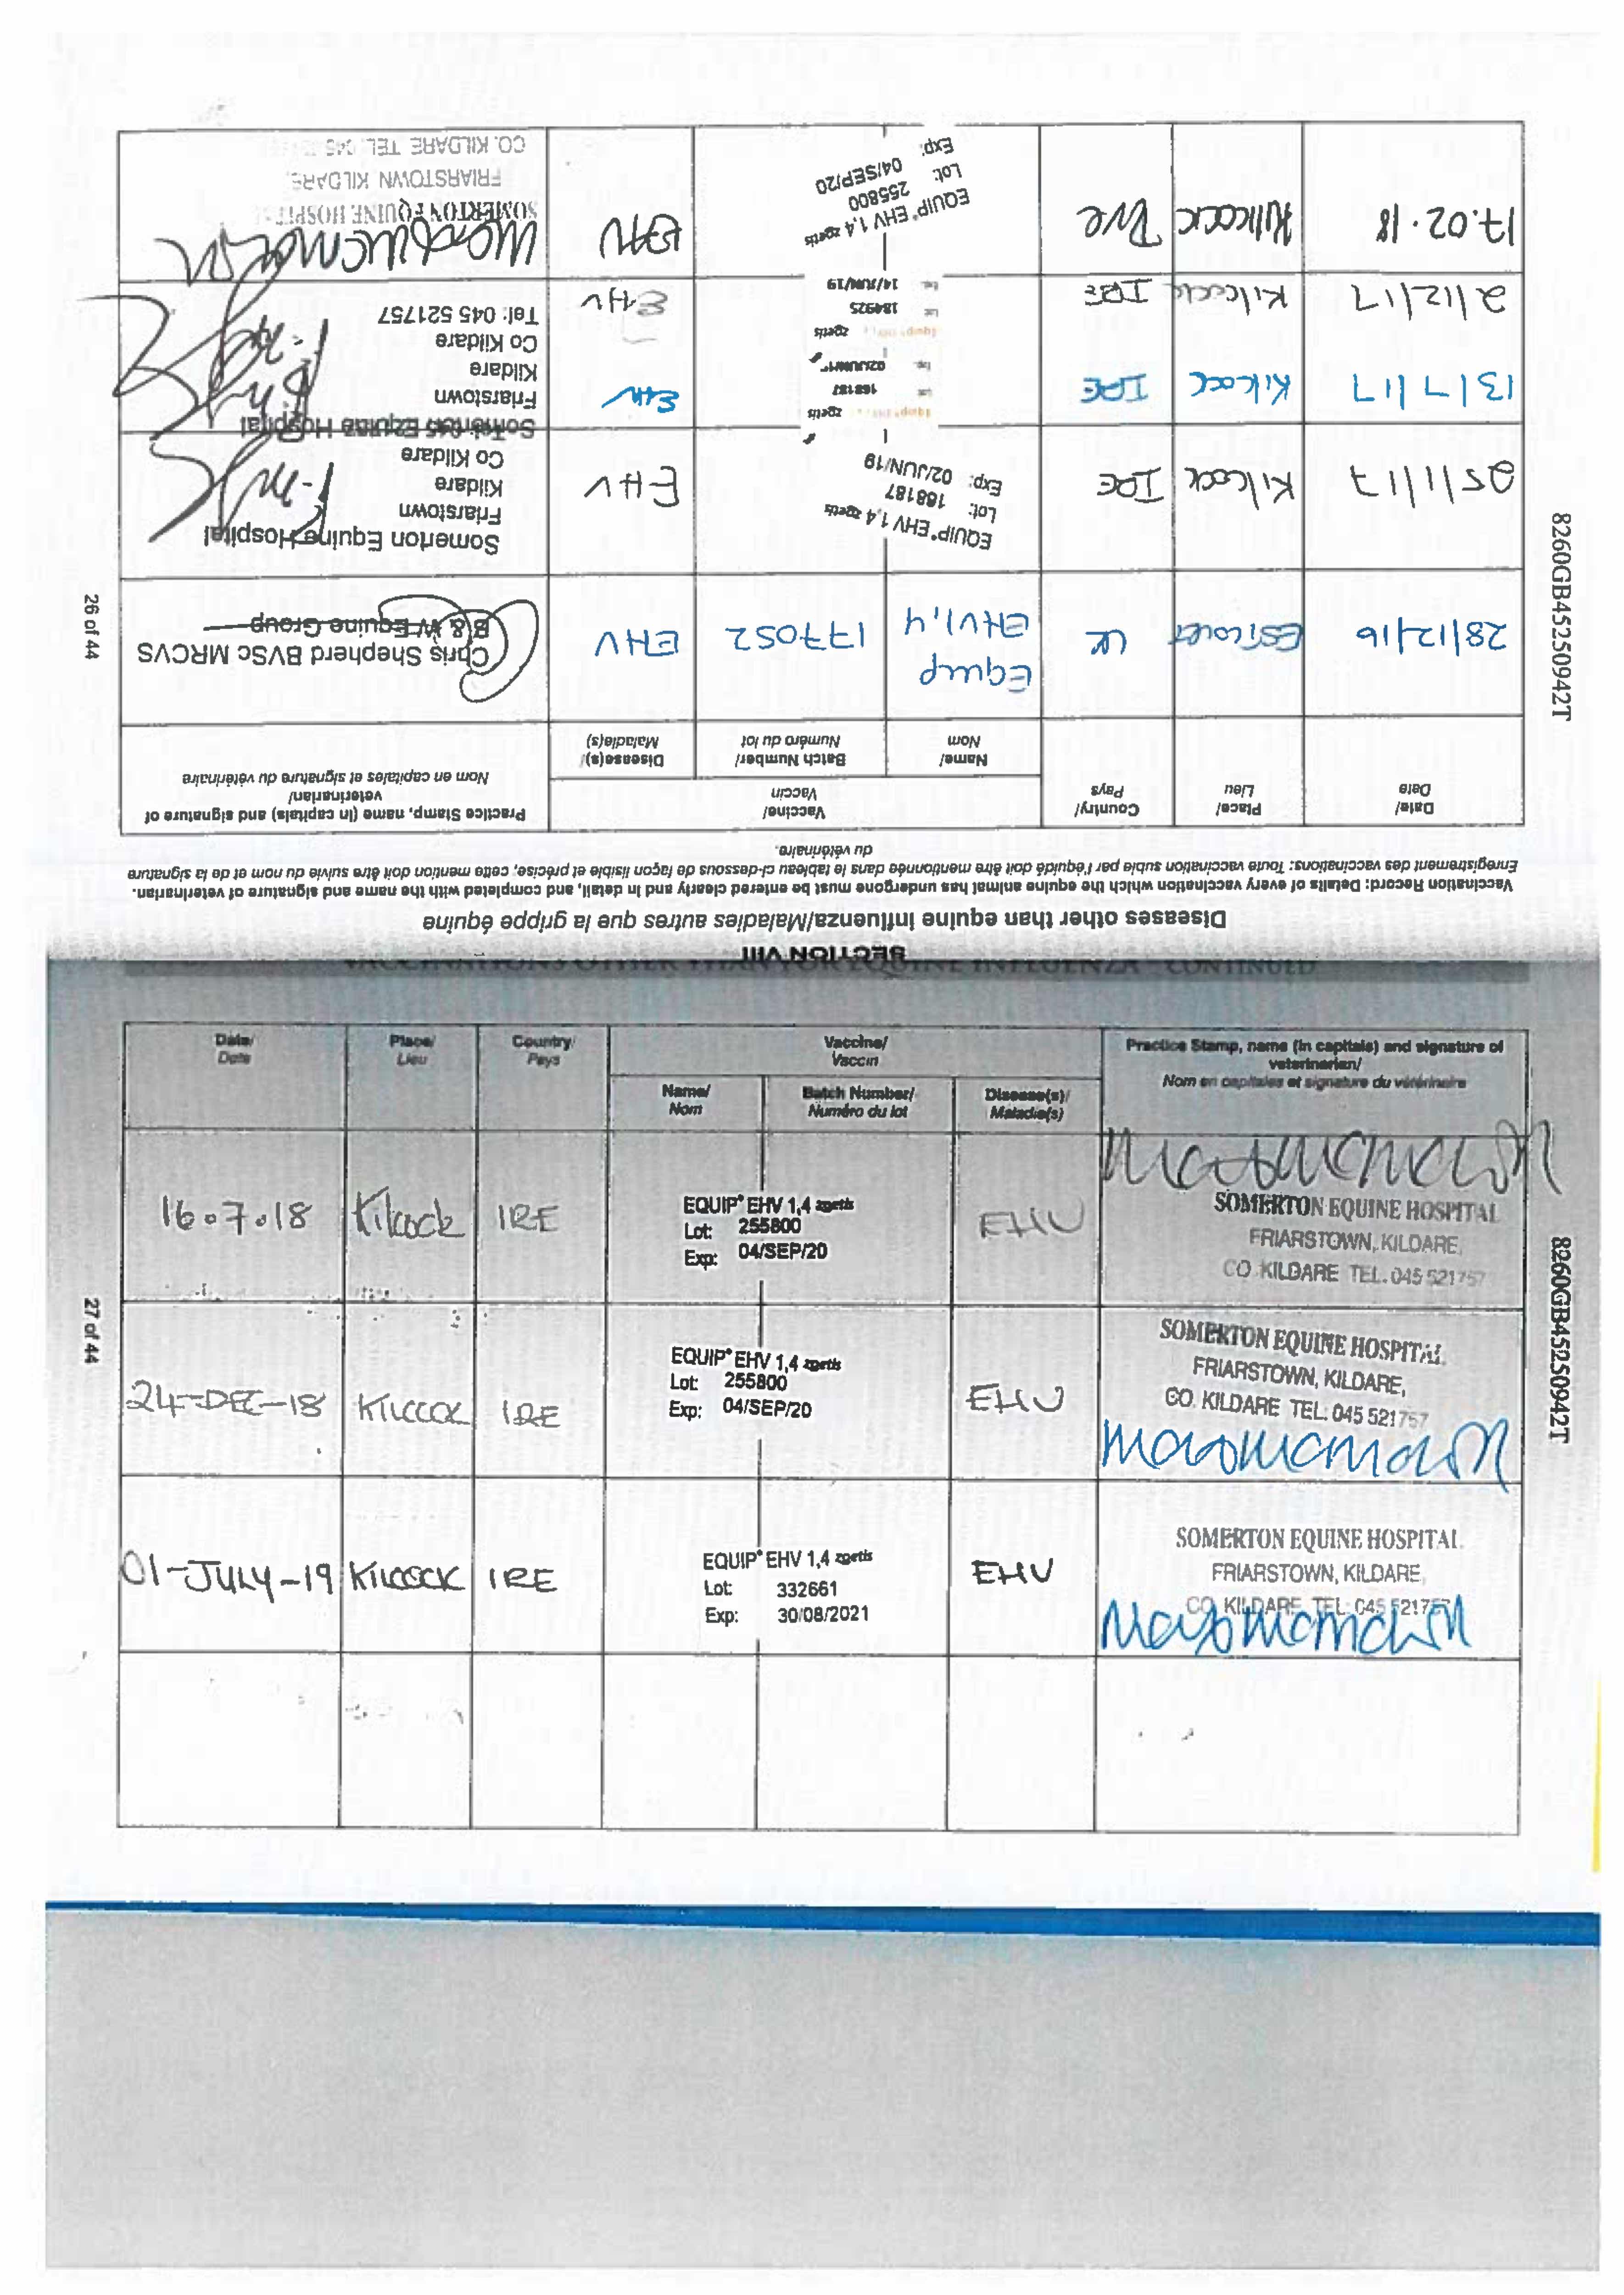 SECTION VIII
Diseases other than equine influenza/Maladies autres que la grippe équine
Vaccination Record: Details of every vaccination which the equine animal has undergone must be entered clearly and in detail, and completed with the name and signature of veterinarian.
Enregistrement des vaccinations: Toute vaccination subie par l'équidé doit être mentionnée dans le tableau ci-dessous de façon lisible et précise, cette mention doit être suivie du nom et de la signature
du vétérinaire.
Date/ Date
Place/ Lieu
Country/ Pays
Vaccine/ Vaccin
Name/ Nom
Batch Number/ Numéro du lot
Disease(s)/ Maladie(s)
Practice Stamp, name (in capitals) and signature of
veterinarian/
Nom en capitales et signature du vétérinaire
28/12/16 UK Equip EHV1,4 177052 EHV
Chris Shepherd BVSc MRCVS
B & W Equine Group
25/1/17 Kilcock IRE EHV
EQUIP® EHV 1,4 zoetis
Lot: 168187
Exp: 02/JUN/19
Somerton Equine Hospital
Friarstown
Kildare
Co Kildare
13/7/17 Kilcock IRE EHV
zoetis
168187
2/12/17 Kilcock IRE EHV
zoetis
184925
14/JUN/19
Somerton Equine Hospital
Friarstown
Kildare
Co Kildare
Tel: 045 521757
17.02.18 Kilcock IRE EHV
EQUIP® EHV 1,4 zoetis
Lot: 255800
Exp: 04/SEP/20
SOMERTON EQUINE HOSPITAL
FRIARSTOWN KILDARE
CO. KILDARE TEL. 045
26 of 44
8260GB45250942T
VACCINATIONS OTHER THAN FOR EQUINE INFLUENZA CONTINUED
Date/ Date
Place/ Lieu
Country/ Pays
Vaccine/ Vaccin
Name/ Nom
Batch Number/ Numéro du lot
Disease(s)/ Maladie(s)
Practice Stamp, name (in capitals) and signature of
veterinarian/
Nom en capitales et signature du vétérinaire
16.7.18 Kilcock IRE EHV
EQUIP® EHV 1,4 zoetis
Lot: 255800
Exp: 04/SEP/20
SOMERTON EQUINE HOSPITAL
FRIARSTOWN, KILDARE,
CO. KILDARE TEL. 045 521757
24-DEC-18 KILCOCK IRE EHV
EQUIP® EHV 1,4 zoetis
Lot: 255800
Exp: 04/SEP/20
SOMERTON EQUINE HOSPITAL
FRIARSTOWN, KILDARE,
CO. KILDARE TEL: 045 521757
01-JULY-19 KILCOCK IRE EHV
EQUIP® EHV 1,4 zoetis
Lot: 332661
Exp: 30/08/2021
SOMERTON EQUINE HOSPITAL
FRIARSTOWN, KILDARE,
CO. KILDARE TEL: 045 521757
27 of 44
8260GB45250942T